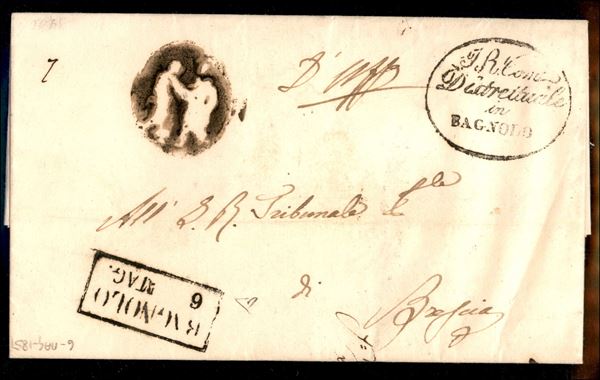 7
D'Uff°
I. R. Com.
Distrettuale
in
BAGNOLO
All' I. R. Tribunale
di
Brescia
BAGNOLO
6
MAG.